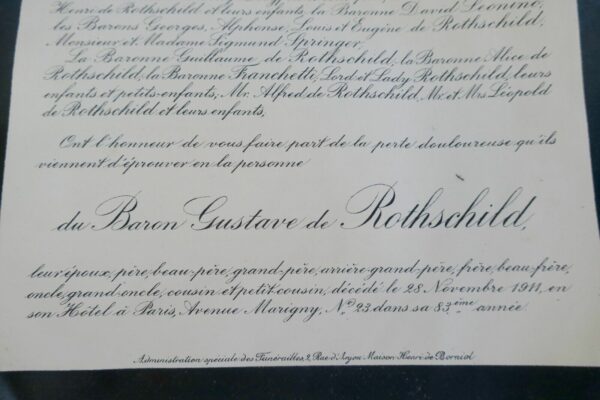 Henri de Rothschild et leurs enfants, la Baronne David Léonino,
les Barons Georges, Alphonse, Louis et Eugène de Rothschild,
Monsieur et Madame Sigmund Springer,
La Baronne Guillaume de Rothschild, la Baronne Alice de
Rothschild, la Baronne Franchetti, Lord et Lady Rothschild, leurs
enfants et petits-enfants, Mr. Alfred de Rothschild, Mr. et Mrs. Léopold
de Rothschild et leurs enfants,
Ont l'honneur de vous faire part de la perte douloureuse qu'ils
viennent d'éprouver en la personne
du Baron Gustave de Rothschild,
leur époux, père, beau-père, grand-père, arrière-grand-père, frère, beau-frère,
oncle, grand-oncle, cousin et petit-cousin, décédé le 28 Novembre 1911, en
son Hôtel à Paris, Avenue Marigny, No. 23 dans sa 83ème année.
Administration spéciale des Funérailles, 2, Rue d'Anjou Maison Henri de Borniol